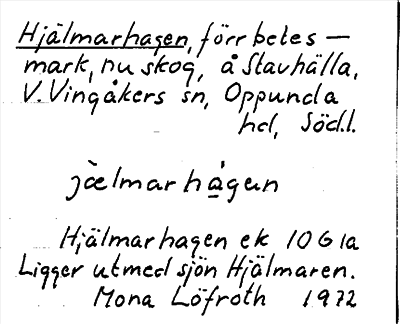 Hjälmarhagen, förr betes –
mark, nu skog, å Stavhälla,
V. Vingåkers sn, Oppunda
hd, Södl.
jä̀lmarhá̱gan
Hjälmarhagen ek 10G1a
Ligger utmed sjön Hjälmaren.
Mona Löfroth 1972